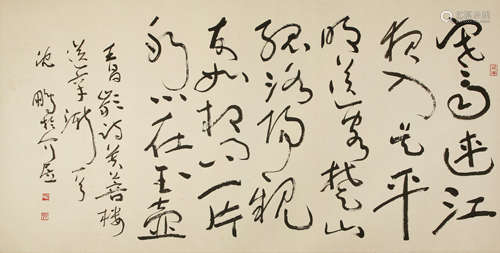 寒雨連江
夜入吴平
明送客楚山
孤洛陽親
友如相问一片
冰心在玉壶
王昌龄诗芙蓉楼
送辛渐一首
沈鹏於介居